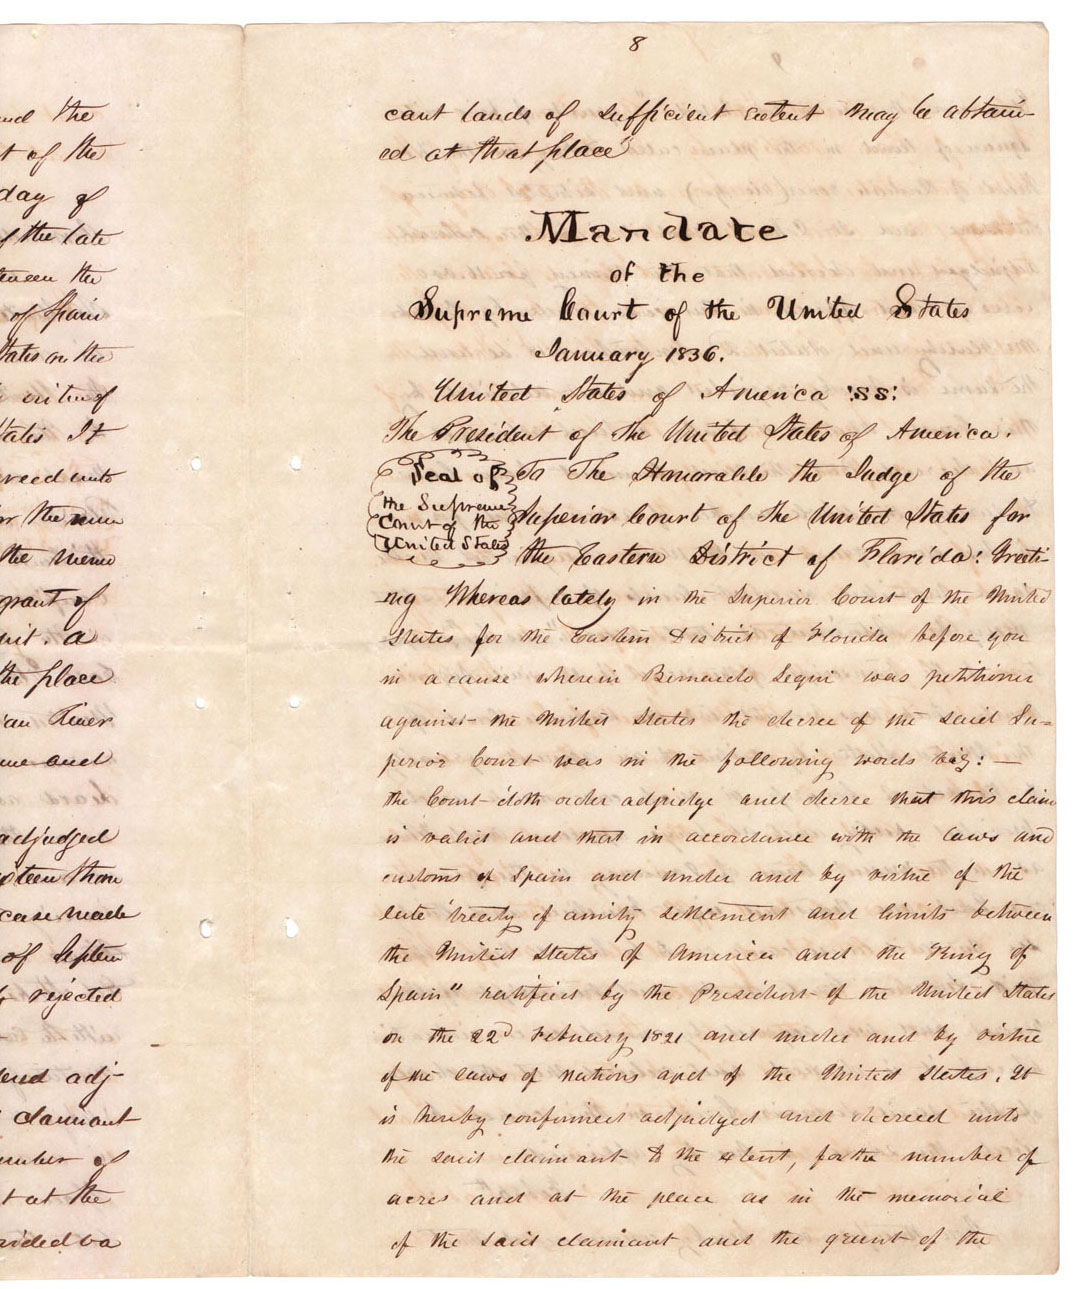 and the
t of the
day of
of the late
tween the
of Spain
States on the
virtue of
States It
creed unto
for the num
the memo
grant of
wit. a
the place
an River
me and
adjudged
ixteen thou
case made
of Septem
rejected
and adj-
claimant
number of
t at the
vided va
8
cant lands of sufficient extent may be obtain-
ed at that place"
Mandate
of the
Supreme Court of the United States
January 1836.
United States of America :SS:
The President of the United States of America.
Seal of
the Supreme
Court of the
United States
To The Honorable the Judge of the
Superior Court of the United States for
the Eastern District of Florida: Greeti-
-ng Whereas lately in the Superior Court of the United
States for the Eastern District of Florida before you
in a cause wherein Bernardo Segui was petitioner
against the United States the decree of the said Su-
perior Court was in the following words viz: —
the Court doth order adjudge and decree that this claim
is valid and that in accordance with the laws and
customs of Spain and under and by virtue of the
late treaty of amity settlement and limits between
the United States of America and the King of
Spain" ratified by the President of the United States
on the 22d February 1821 and under and by virtue
of the laws of nations and of the United States. It
is hereby confirmed adjudged and decreed unto
the said claimant to the extent, for the number of
acres and at the place as in the memorial
of the said claimant and the grant of the